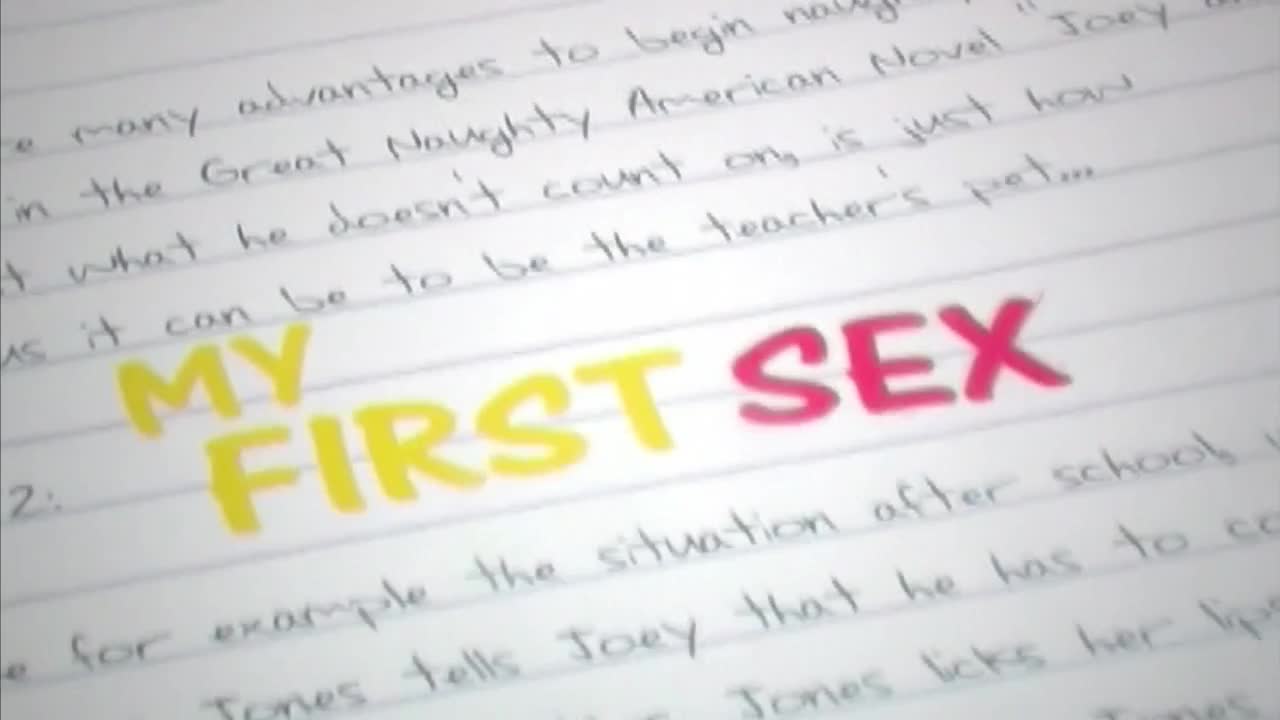 many advantages to begin
in the Great Naughty American Novel "Joey
what he doesn't count on, is just how
as it can be to be the teacher's pet...
MY
FIRST SEX
2:
for example the situation after school,
Jones tells Joey that he has to
Jones licks her lips
Jones